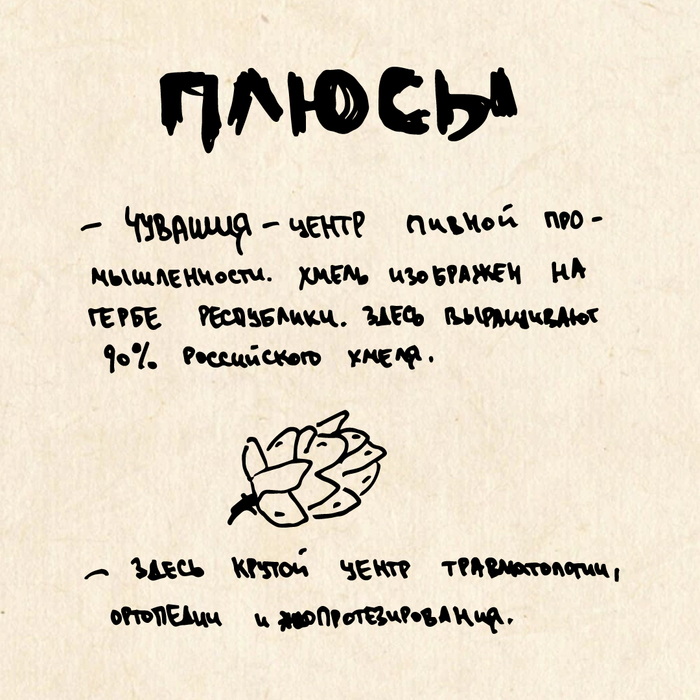 ПЛЮСЫ
– ЧУВАШИЯ – ЦЕНТР ПИВНОЙ ПРО-
МЫШЛЕННОСТИ. ХМЕЛЬ ИЗОБРАЖЕН НА
ГЕРБЕ РЕСПУБЛИКИ. ЗДЕСЬ ВЫРАЩИВАЮТ
90% РОССИЙСКОГО ХМЕЛЯ.
– ЗДЕСЬ КРУТОЙ ЦЕНТР ТРАВМАТОЛОГИИ,
ОРТОПЕДИИ И ЭНДОПРОТЕЗИРОВАНИЯ.